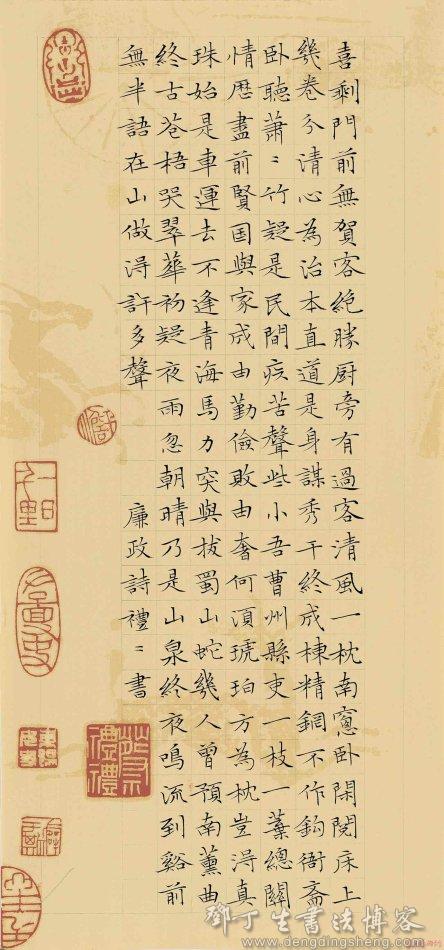 喜剩門前無賀客絕勝厨旁有過客清風一枕南窓卧閑閱床上
幾卷分清心為治本直道是身謀秀干終成棟精鋼不作鈎衙斎
卧聽蕭〻竹疑是民間疾苦聲些小吾曹州縣吏一枝一葉總關
情歷盡前賢国與家成由勤儉敗由奢何須琥珀方為枕豈淂真
珠始是車運去不逢青海馬力突與拔蜀山蛇幾人曾預南薰曲
終古苍梧哭翠華初疑夜雨忽朝晴乃是山泉終夜鳴流到谿前
無半語在山做淂許多聲
廉政詩禮〻書
鄧丁生書法博客
www.dengdingsheng.com